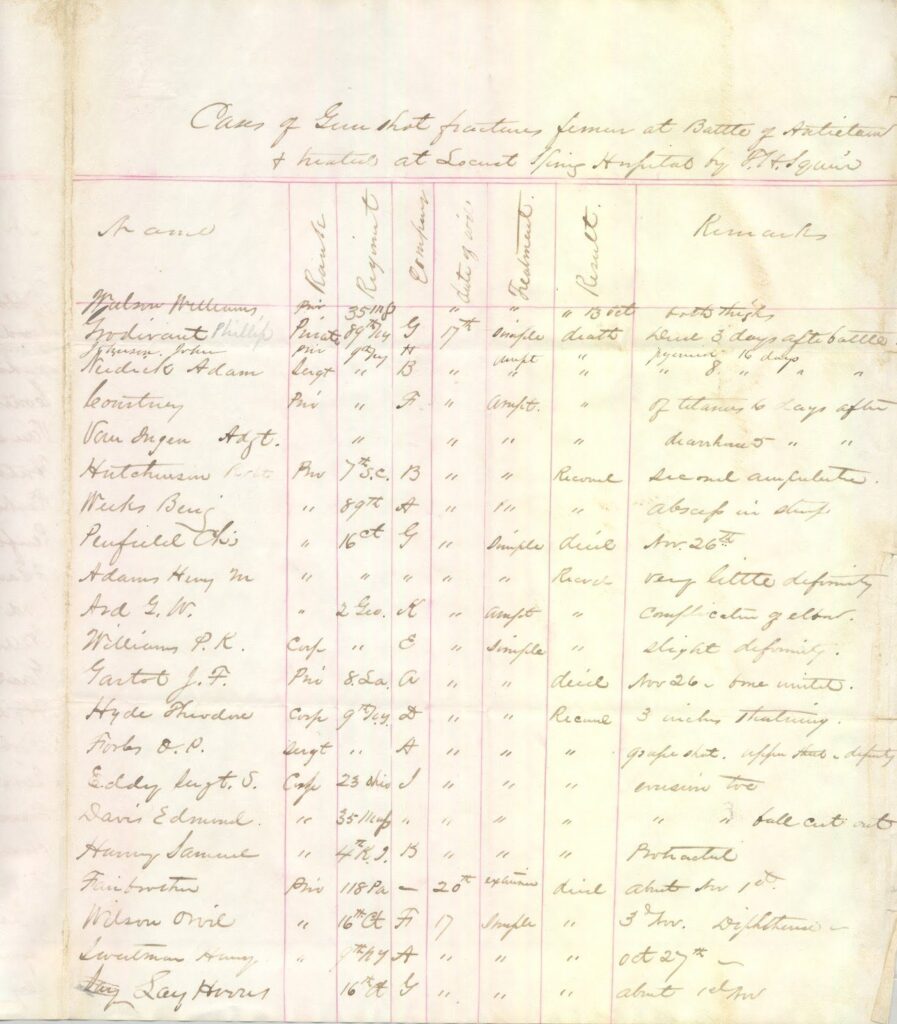 Cases of Gun shot fractures femur at Battle of Antietam
& treated at Locust Spring Hospital by T.H. Squire
Name Rank Regiment Company date of Treatment. Result. Remarks
Watson Williams, Priv 35 " " " 13 Oct both thighs
Phillip Private 89th NY G 17th Simple death Died 3 days after battle
Johnson. John Priv 9th NY H ampt " pyemia 16 days
Adam Sergt " " B " " " " 8 " " "
Courtney Priv " F " Ampt. " of tetanus 6 days after
Van Ingen Adgt. " " " " diarrhoea 5 " "
Hutchinson Priv 7th S.C. B " " Recovd second amputation
Weeks Benj " 89th A " " " abscess in stump
Penfield Chs " 16 Ct G " Simple died Nov. 26th
Adams Henry M " " " " " Recovd very little deformity
Ard G. W. " 2 Geo. K " Ampt " complication of elbow.
Williams P. K. Corp " E " Simple " slight deformity.
J. F. Priv 8. La. A " " died Nov 26 - bone united.
Hyde Theodore Corp 9th NY D " " Recovd 3 inches shortning.
Forbs D. P. Sergt " A " " " grape shot. upper third - deformity
Eddy Sergt. S. Corp 23 Ohio I " " " toe
Davis Edmund. " 35 Mass " " " " " " ball cut out
Samuel " 4th R. I. B " " " Protracted
Fairbrother Priv 118 Pa — 20th died about Nov 1st.
Wilson Orvil " 16th Ct F 17 Simple " 3d Nov. Diphtheria —
Sweetman Henry " 9th NY A " " " Oct 27th —
Lay Horris 16th Ct G " " " about 1st Nov